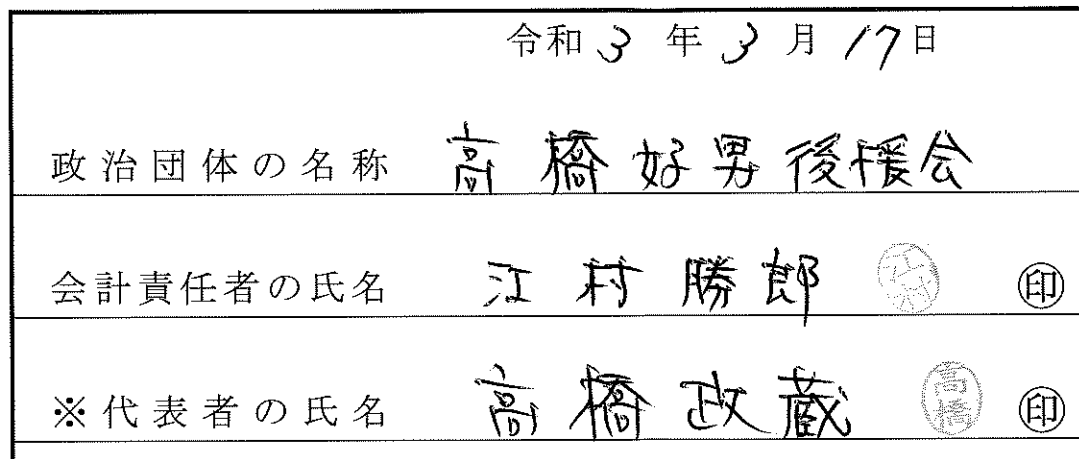 令和3年3月17日
政治団体の名称 高橋好男後援会
会計責任者の氏名 江村勝郎 江村 ㊞
※代表者の氏名 高橋政蔵 高橋 ㊞